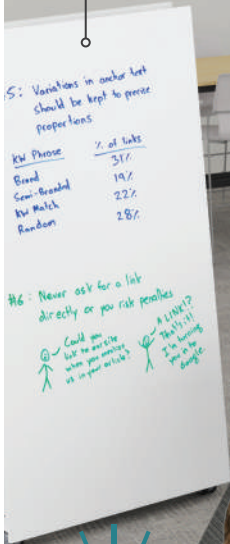 #5: Variations in anchor text
should be kept to precise
proportions
KW Phrase % of links
Brand 31%
Semi-Branded 19%
KW Match 22%
Random 28%
#6: Never ask for a link
directly or you risk penalties
Could you
link to our site
when you mention
us in your article?
A LINK!?
That's it!
I'm turning
you in to
Google.